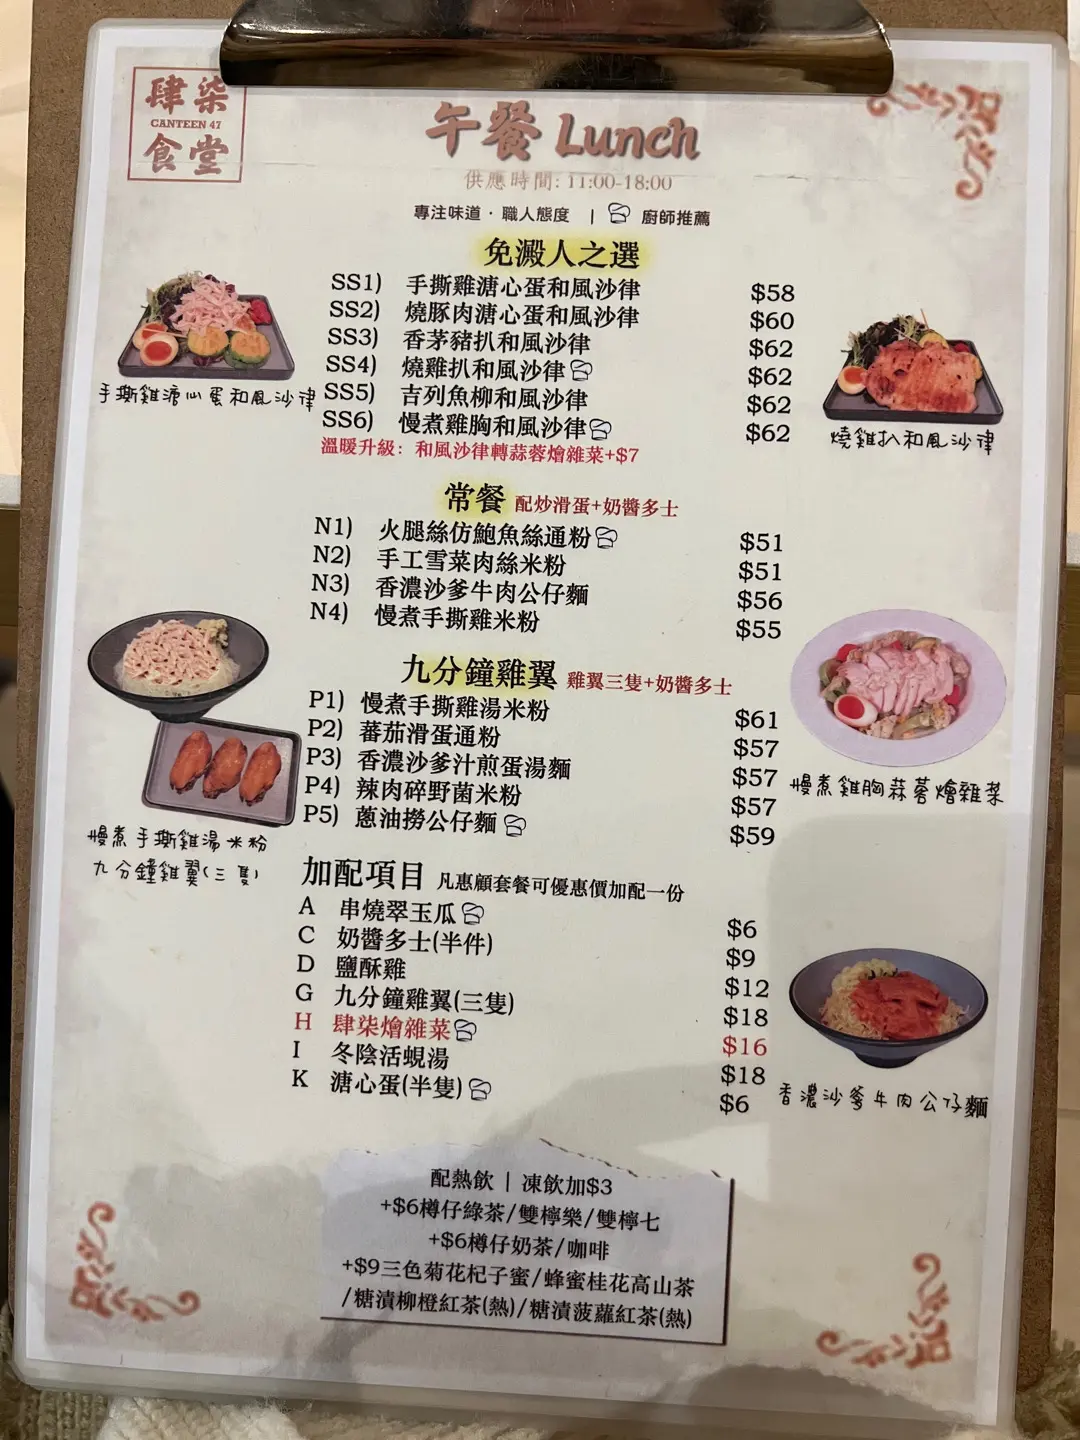 肆柒
CANTEEN 47
食堂
午餐 Lunch
供應時間: 11:00-18:00
專注味道 · 職人態度 | 廚師推薦
免澱人之選
SS1) 手撕雞溏心蛋和風沙律 $58
SS2) 燒豚肉溏心蛋和風沙律 $60
SS3) 香茅豬扒和風沙律 $62
SS4) 燒雞扒和風沙律 $62
SS5) 吉列魚柳和風沙律 $62
SS6) 慢煮雞胸和風沙律 $62
溫暖升級: 和風沙律轉蒜蓉燴雜菜+$7
手撕雞溏心蛋和風沙律
燒雞扒和風沙律
常餐 配炒滑蛋+奶醬多士
N1) 火腿絲仿鮑魚絲通粉 $51
N2) 手工雪菜肉絲米粉 $51
N3) 香濃沙爹牛肉公仔麵 $56
N4) 慢煮手撕雞米粉 $55
九分鐘雞翼 雞翼三隻+奶醬多士
P1) 慢煮手撕雞湯米粉 $61
P2) 蕃茄滑蛋通粉 $57
P3) 香濃沙爹汁煎蛋湯麵 $57
P4) 辣肉碎野菌米粉 $57
P5) 蔥油撈公仔麵 $59
慢煮雞胸蒜蓉燴雜菜
慢煮手撕雞湯米粉
九分鐘雞翼(三隻)
加配項目 凡惠顧套餐可優惠價加配一份
A 串燒翠玉瓜 $6
C 奶醬多士(半件) $9
D 鹽酥雞 $12
G 九分鐘雞翼(三隻) $18
H 肆柒燴雜菜 $16
I 冬陰活蜆湯 $18
K 溏心蛋(半隻) $6
香濃沙爹牛肉公仔麵
配熱飲 | 凍飲加$3
+$6樽仔綠茶/雙檸樂/雙檸七
+$6樽仔奶茶/咖啡
+$9三色菊花杞子蜜/蜂蜜桂花高山茶
/糖漬柳橙紅茶(熱)/糖漬菠蘿紅茶(熱)